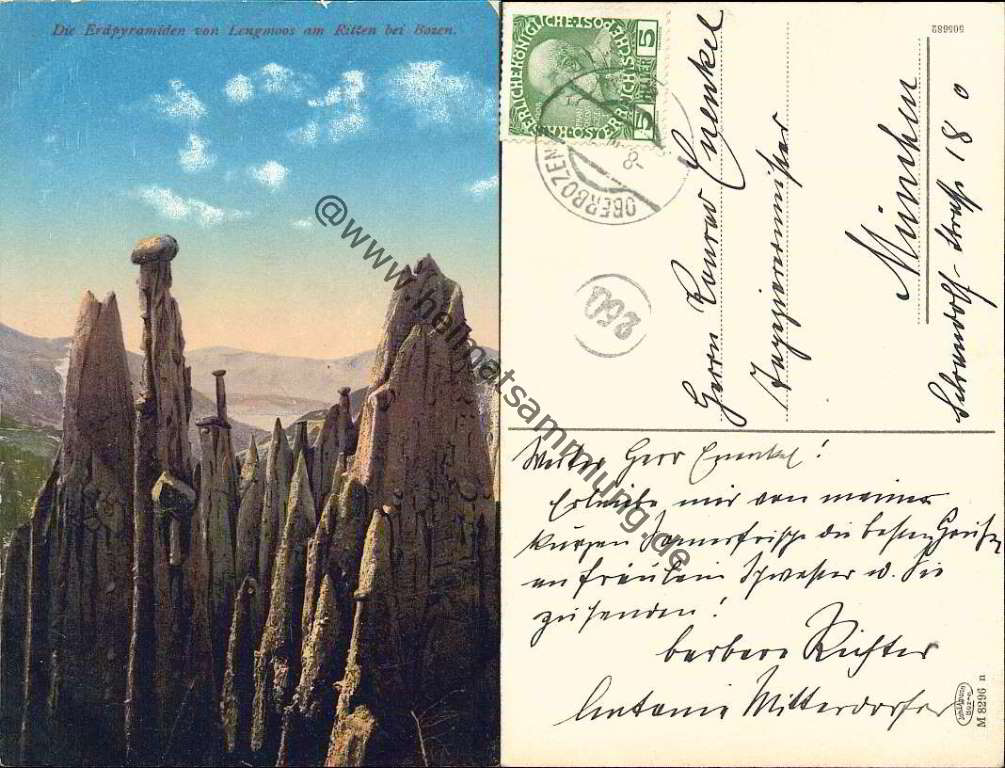 Die Erdpyramiden von Lengmoos am Ritten bei Bozen.
@www.heimatsammlung.de
KAISERLICHE KÖNIGLICHE ÖSTERREICHISCHE
5 HELLER 5
OBERBOZEN
260
505682
Herrn Konrad Euenkel
München
Schraudolf-Straße 18 0
Werter Herr Euenkel!
Erlaube mir von meiner
kurzen Sommerfrische die besten Grüße
an Fräulein Schwester u. Sie
zu senden!
Barbara Richter
Antonie Mitterdorfer
M 8296 n